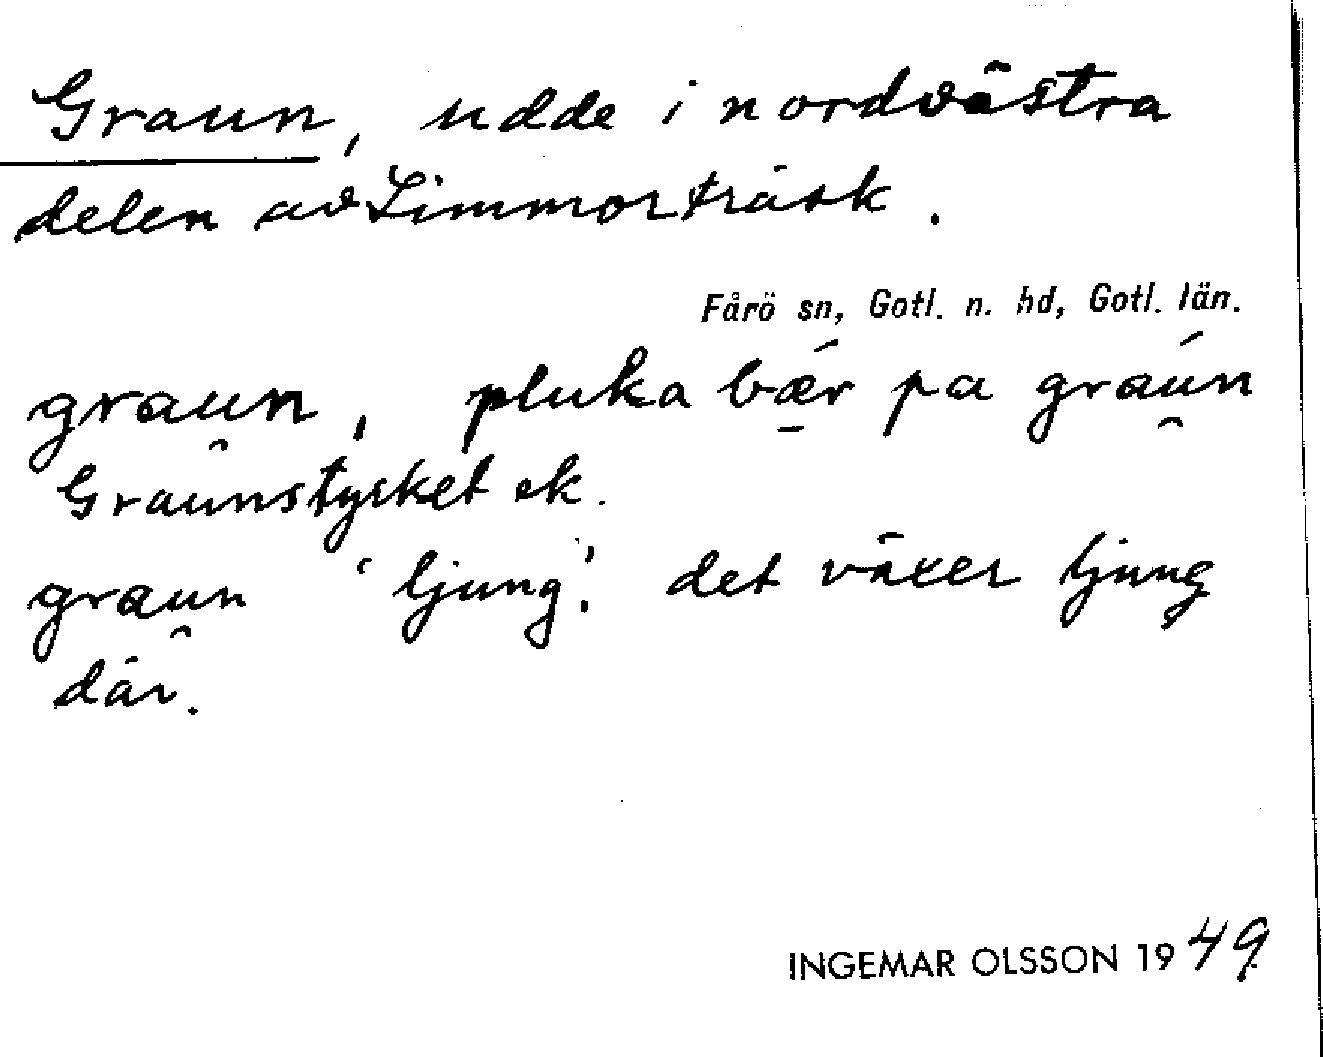 Graun, udde i nordvästra
delen av Limmorträsk.
Fårö sn, Gotl. n. hd, Gotl. län.
grau̯n, pluka bǣ́r pa gráu̯n
Graunstycket ek.
grau̯n 'ljung'. det växer ljung
där.
INGEMAR OLSSON 1949